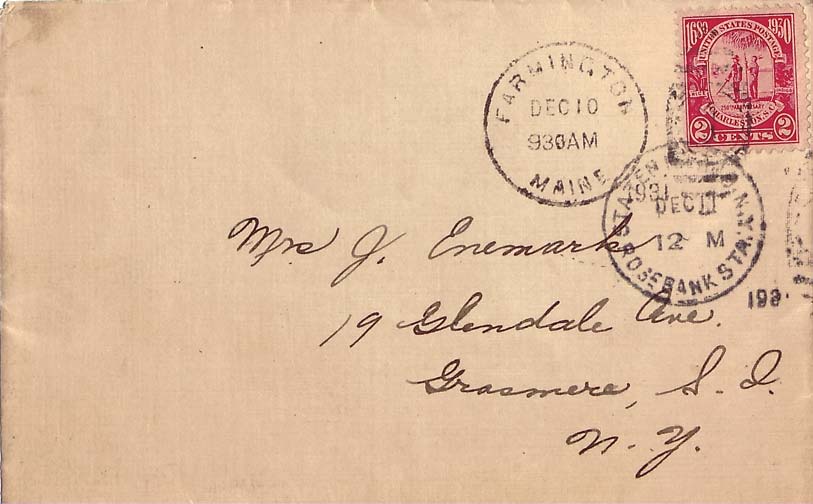 1680 1930
UNITED STATES POSTAGE
CHARLESTON, S.C.
2 CENTS 2
FARMINGTON
DEC 10
930AM
MAINE
1931
STATEN
DEC 11
12 M
ROSEBANK STA.
193
Mrs J. Enemark
19 Glendale Ave.
Grasmere, S. I.
N. Y.